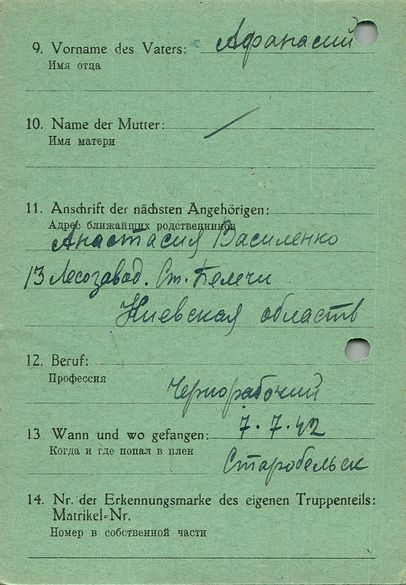 9. Vorname des Vaters: Афанасий
Имя отца
10. Name der Mutter: /
Имя матери
11. Anschrift der nächsten Angehörigen:
Адрес ближайших родственников
Анастасия Василенко
13 Лесозавод. Ст. Белечи
Киевская область
12. Beruf:
Профессия
Чернорабочий
13 Wann und wo gefangen: 7.7.42
Когда и где попал в плен
Старобельск
14. Nr. der Erkennungsmarke des eigenen Truppenteils:
Matrikel-Nr.
Номер в собственной части